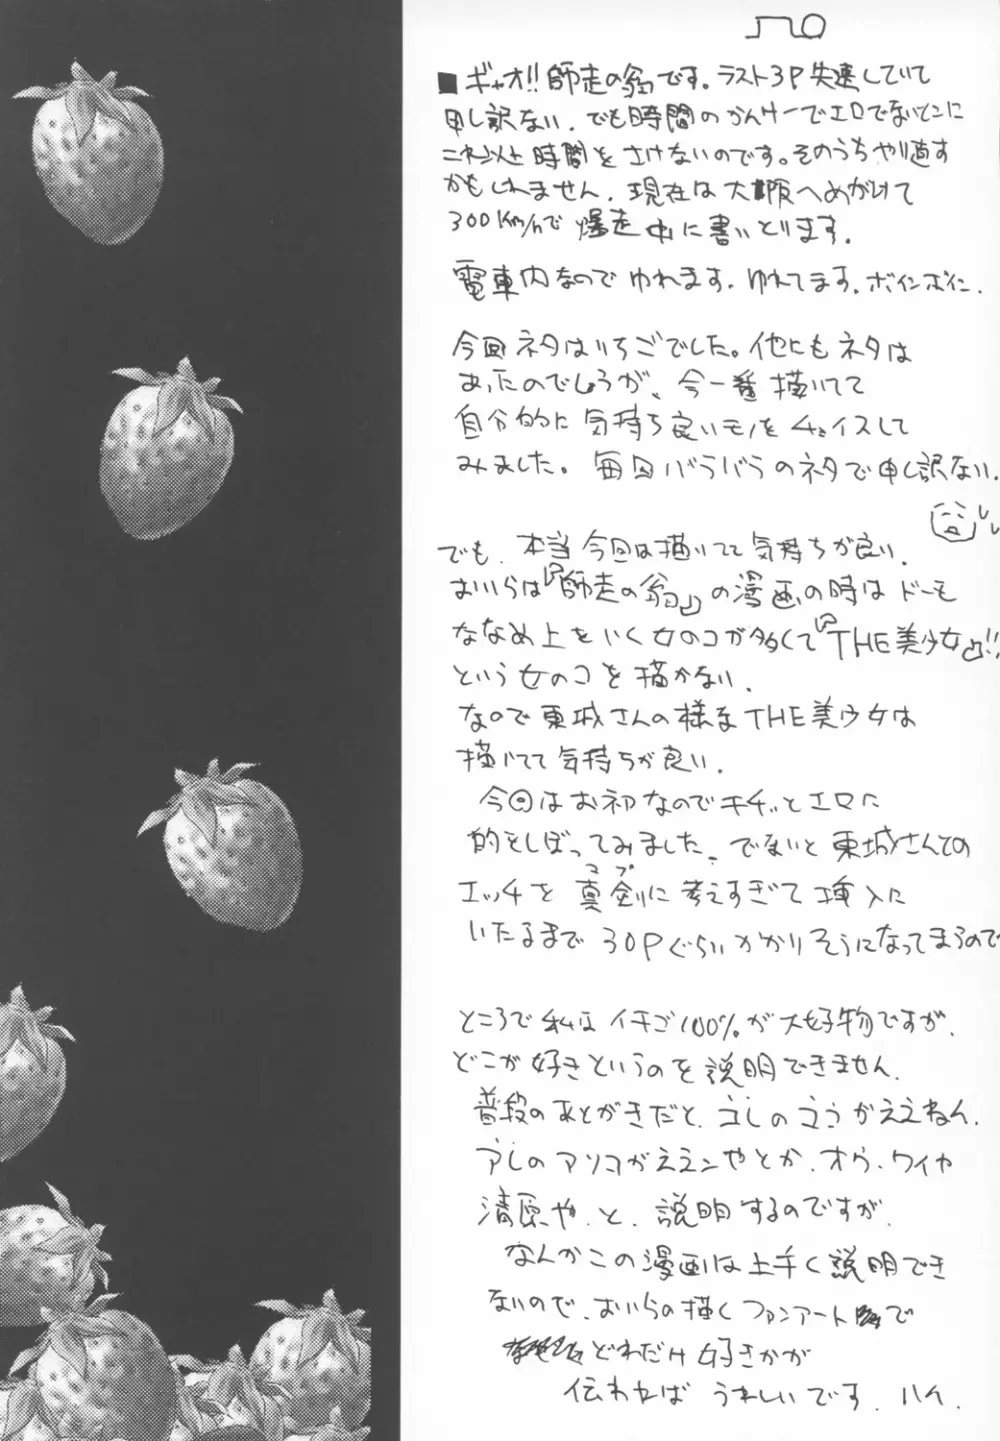 ■ギャオ!!師走の翁です。ラスト3P失速していて
申し訳ない。でも時間のかんけーでエロでないとこに
これ以上時間をさけないのです。そのうちやり直す
かもしれません。現在は大阪へめがけて
300Km/hで爆走中に書いとります。
電車内なのでゆれます。ゆれてます。ボインボイン.
今回ネタはいちごでした。他にもネタは
あったのでしょうが、今一番描いてて
自分的に気持ち良いモノをチョイスして
みました。毎回バラバラのネタで申し訳ない.
でも、本当今回は描いてて気持ちが良い.
おいらは『師走の翁』の漫画の時はドーも
ななめ上をいく女のコが多くて『THE美少女』!!
という女のコを描かない.
なので東城さんの様なTHE美少女は
描いてて気持ちが良い.
今回はお初なのでキチッとエロに
的をしぼってみました。でないと東城さんでの
エッチを真剣に考えすぎて挿入に
マブ
いたるまで30Pぐらいかかりそうになってまうので
ところで私はイチゴ100%が大好物ですが、
どこが好きというのを説明できません.
普段のあとがきだと、コレのココがええねん.
アレのアソコがええンやとか、オウ、ワイや
清原や、と、説明するのですが、
なんかこの漫画は上手く説明でき
ないので、おいらの描くファンアートで
どれだけ好きかが
伝われば うれしいです. ハイ.